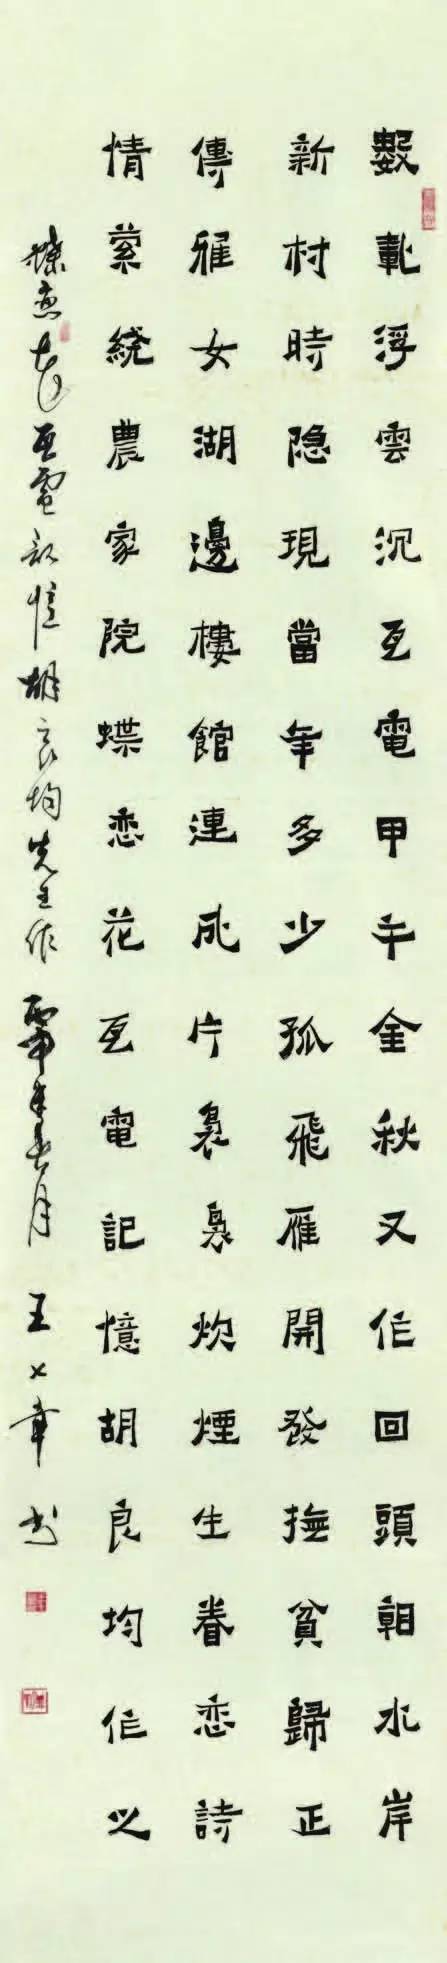 數載浮雲沉瓦電甲午金秋又作回頭朝水岸
新村時隐現當年多少孤飛雁開發撫貧歸正
傳雅女湖邊樓館連成片裊裊炊煙生眷恋詩
情縈繞農家院蝶恋花瓦電記憶胡良均作之
蝶恋花瓦電記憶胡良均先生作 丙申年春月 王章书